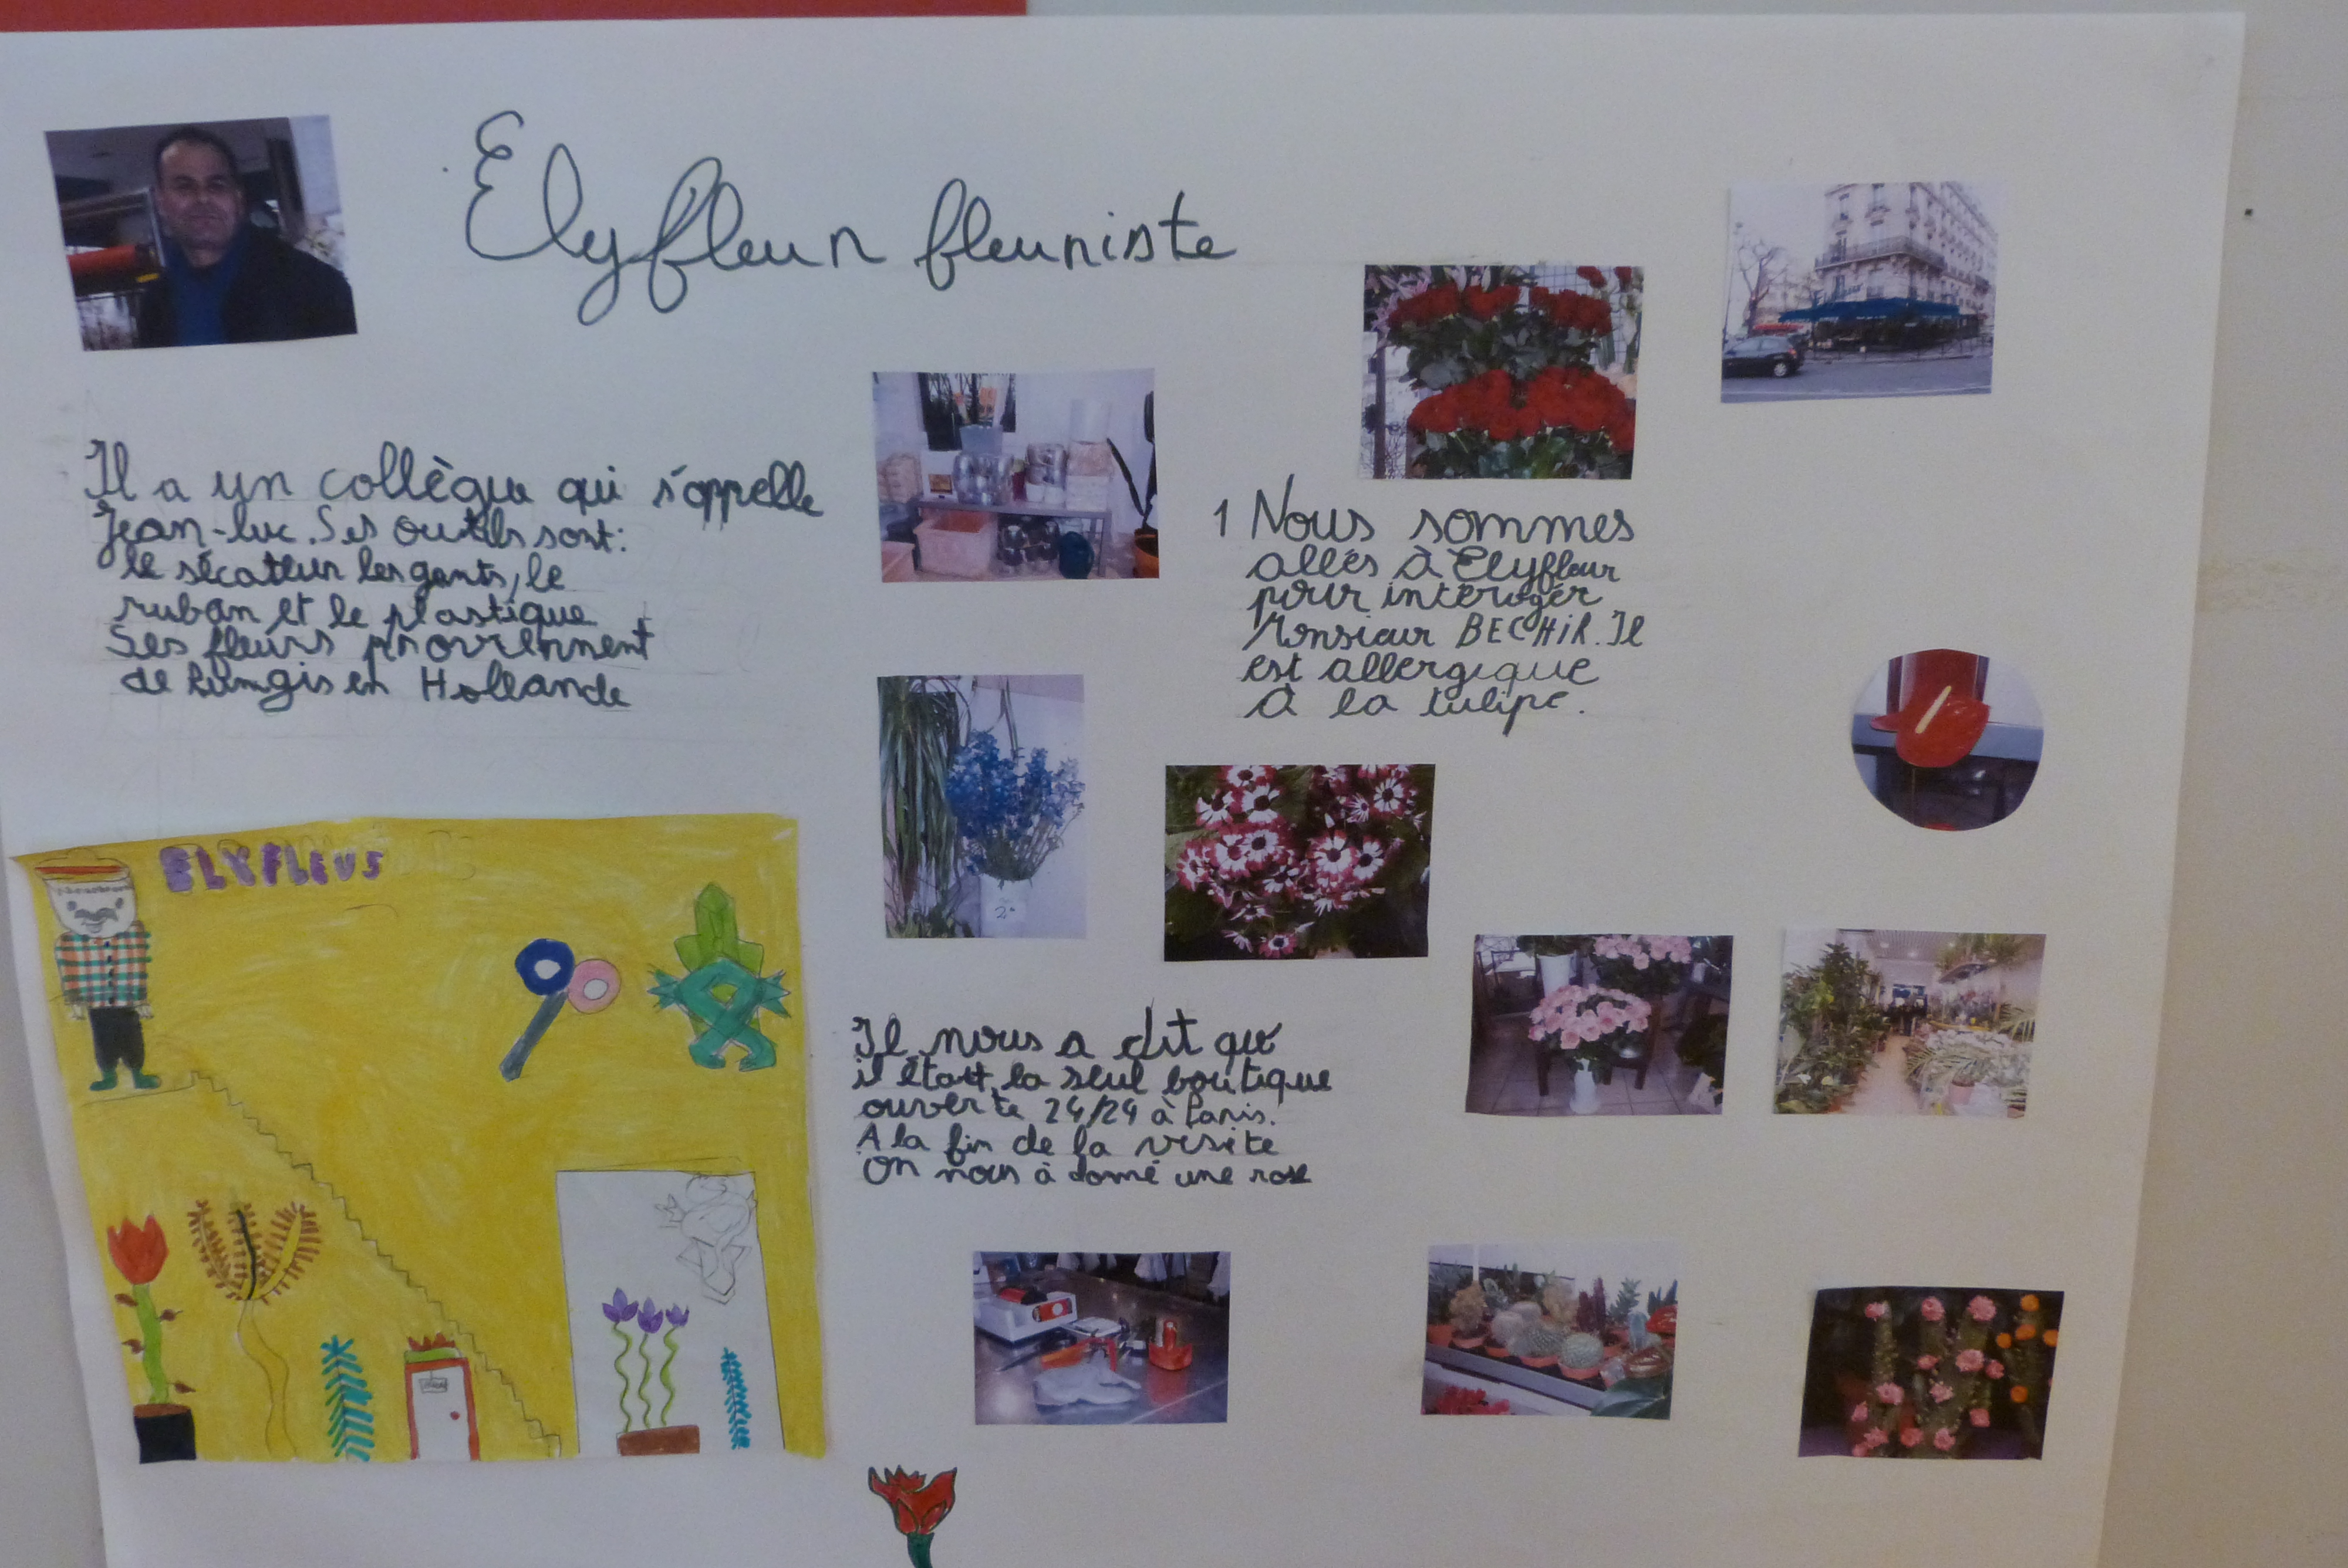 Elyfleur fleuriste
Il a un collègue qui s'appelle
Jean-luc. Ses outils sont:
le sécateur les gants, le
ruban et le plastique
Ses fleurs proviennent
de Rungis en Hollande
1 Nous sommes
allés à Elyfleur
pour interoger
Monsieur BECHIR. Il
est allergique
à la tulipe.
ELYFLEUS
2
Il nous a dit que
il était la seul boutique
ouverte 24/24 à Paris.
A la fin de la visite
on nous à donné une rose